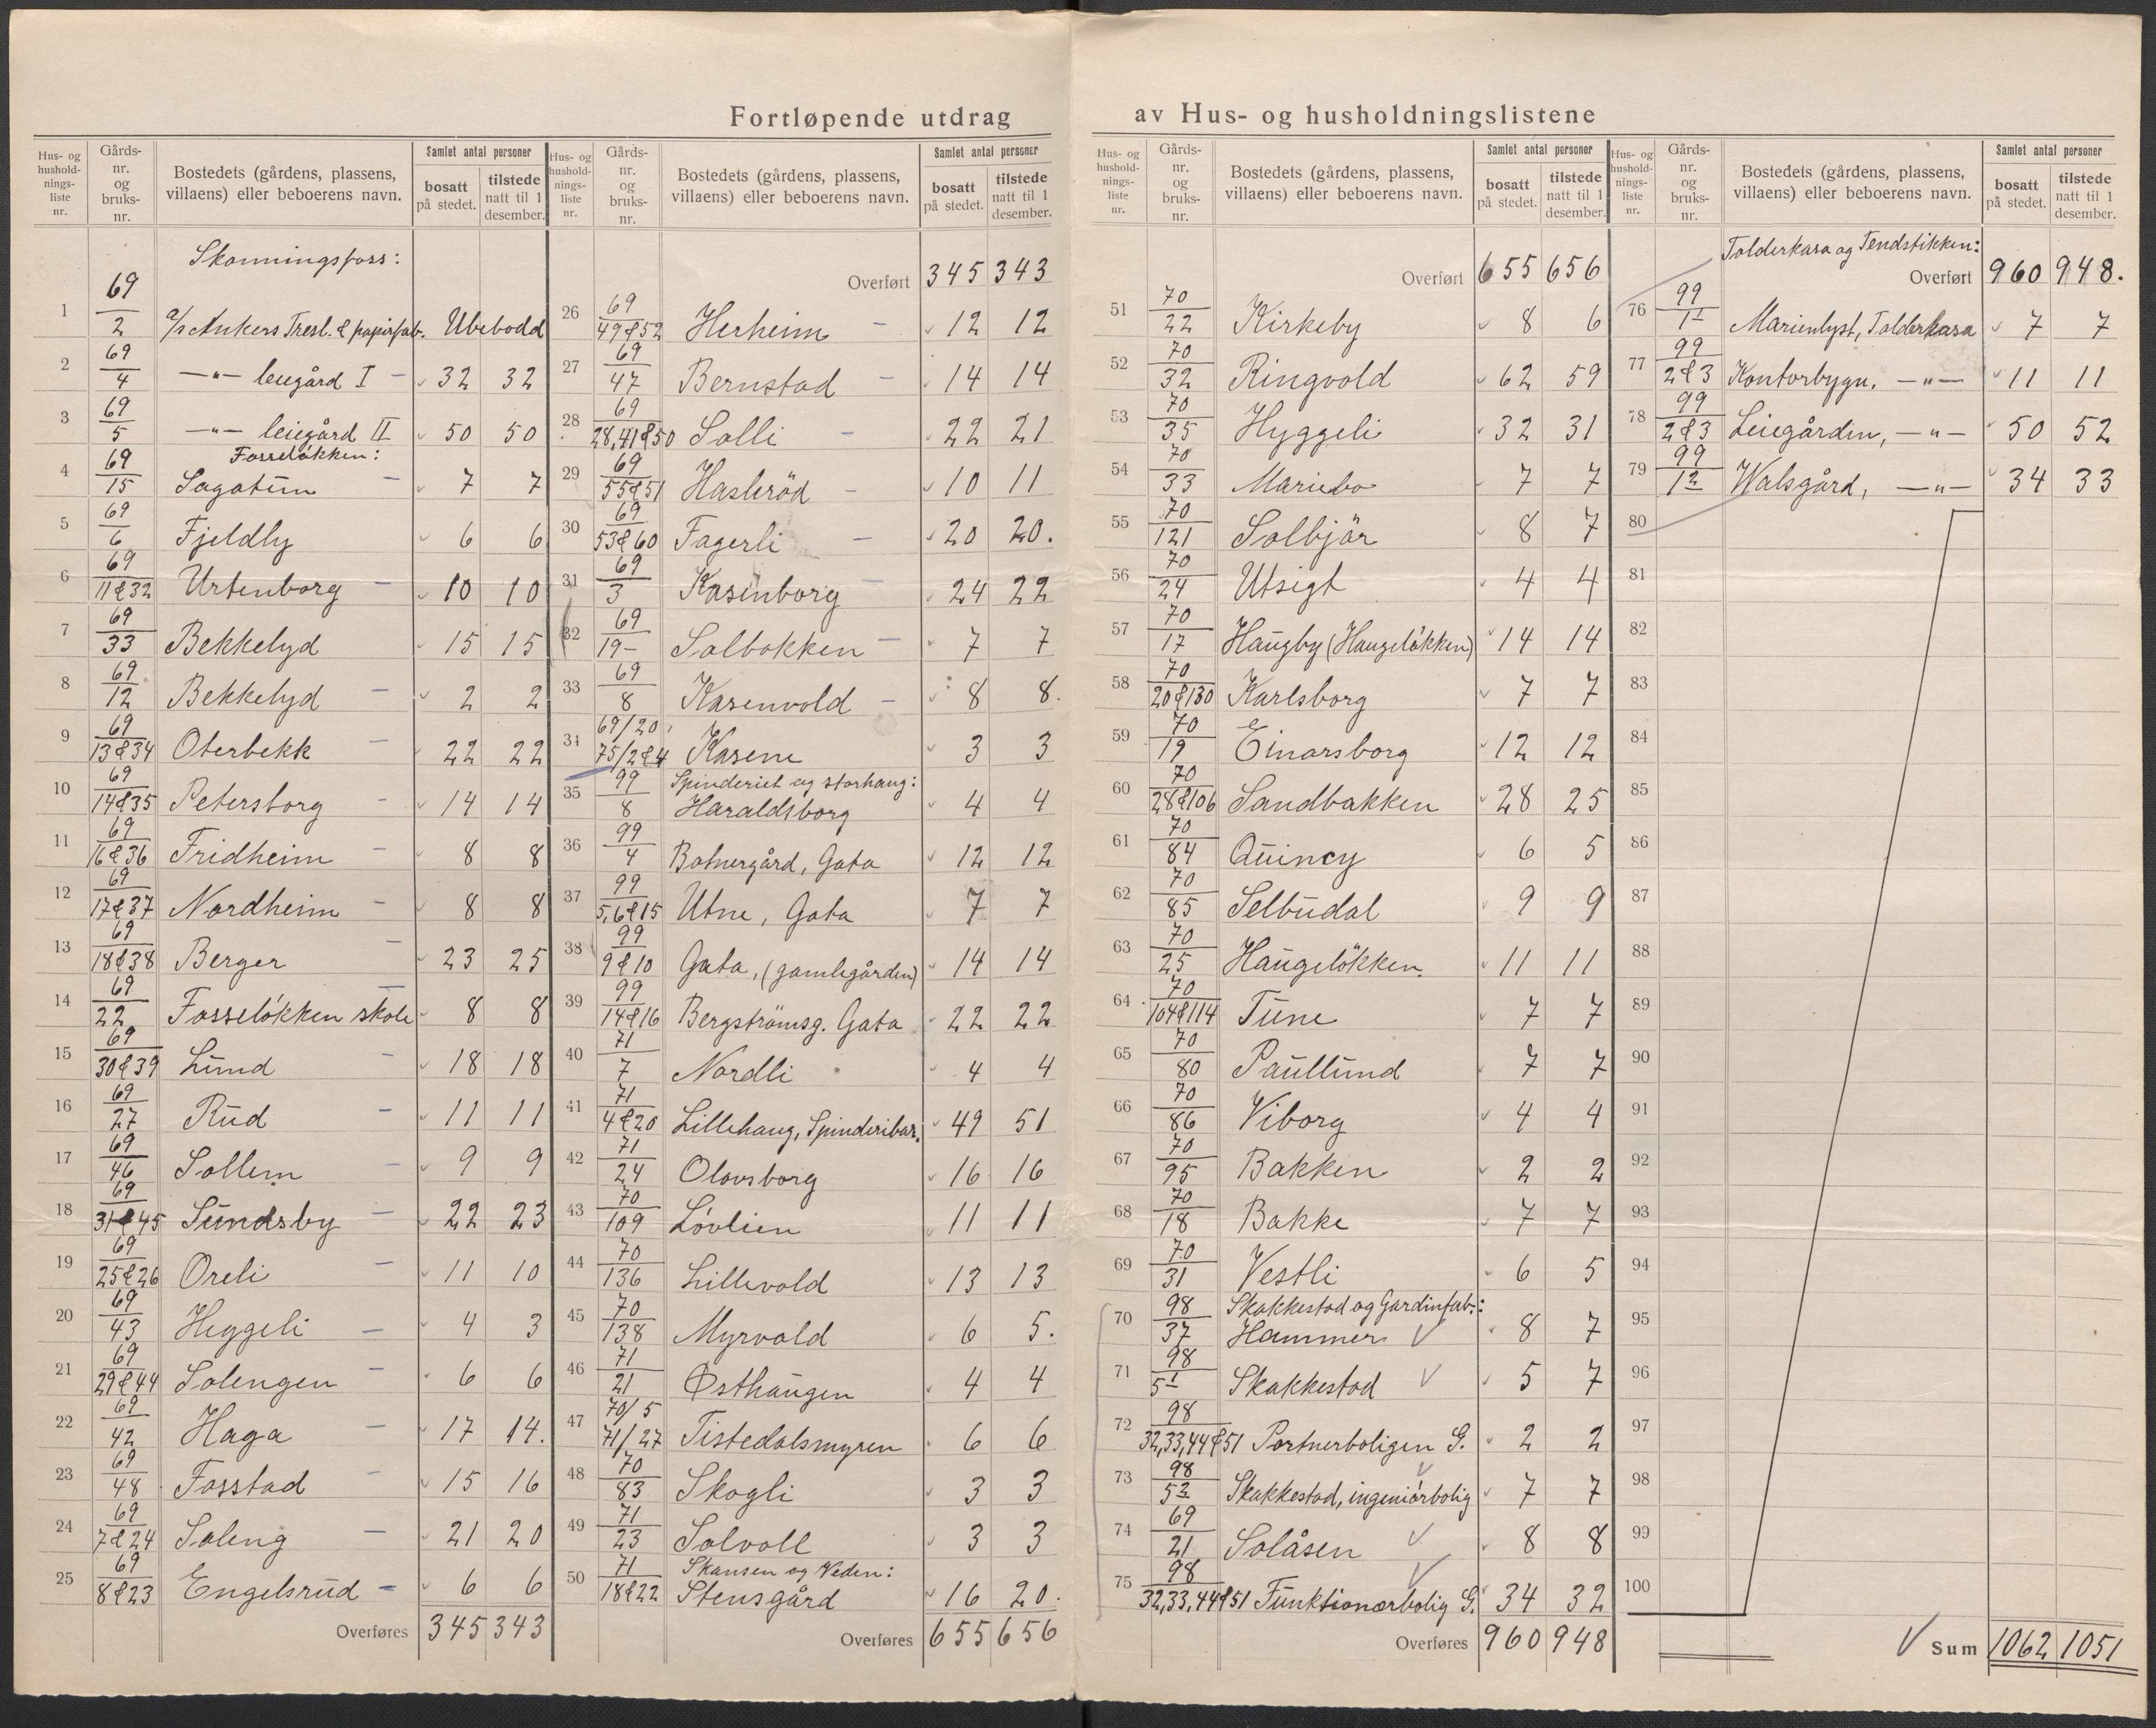 Fortløpende utdrag av Hus- og husholdningslistene
Hus- og hushold- nings- liste nr. | Gårds- nr. og bruks- nr. | Bostedets (gårdens, plassens, villaens) eller beboerens navn. | Samlet antal personer bosatt på stedet. | tilstede natt til 1 desember.
Skonningsfoss:
1 69/2 a/s Ankers Tresl. & papirfab. Ubebodd
2 69/4 —"— leiegård I 32 32
3 69/5 —"— leiegård II 50 50
Fosseløkken:
4 69/15 Sagatun 7 7
5 69/6 Fjeldly 6 6
6 69/11&32 Urtenborg 10 10
7 69/33 Bekkelyd 15 15
8 69/12 Bekkelyd 2 2
9 69/13&34 Oterbekk 22 22
10 69/14&35 Petersborg 14 14
11 69/16&36 Fridheim 8 8
12 69/17&37 Nordheim 8 8
13 69/18&38 Berger 23 25
14 69/22 Fosseløkken skole 8 8
15 69/30&39 Lund 18 18
16 69/27 Rud 11 11
17 69/46 Sollem 9 9
18 69/31&45 Sundsby 22 23
19 69/25&26 Oreli 11 10
20 69/43 Heggeli 4 3
21 69/29&44 Solengen 6 6
22 69/42 Haga 17 14.
23 69/48 Fosstad 15 16
24 69/7&24 Soleng 21 20
25 69/8&23 Engelsrud 6 6
Overføres 345 343
Hus- og hushold- nings- liste nr. | Gårds- nr. og bruks- nr. | Bostedets (gårdens, plassens, villaens) eller beboerens navn. | Samlet antal personer bosatt på stedet. | tilstede natt til 1 desember.
Overført 345 343
26 69/49&52 Herheim 12 12
27 69/47 Bernstad 14 14
28 69/28,41&50 Solli 22 21
29 69/55&51 Haslerød 10 11
30 69/53&60 Fagerli 20 20.
31 69/3 Kasenborg 24 22
32 69/19 Solbakken 7 7
33 69/8 Kasenvold 8 8.
34 69/20, 75/2&4 Kasene 3 3
Spinderiet og Storhaug:
35 99/8 Haraldsborg 4 4
36 99/4 Botnergård, Gata 12 12
37 99/5,6&15 Utne, Gata 7 7
38 99/9&10 Gata, (gamlegården) 14 14
39 99/14&16 Bergstrømsg. Gata 22 22
40 71/7 Nordli 4 4
41 71/4&20 Lillehaug, Spinderibar. 49 51
42 71/24 Olavsborg 16 16
43 70/109 Løvlien 11 11
44 70/136 Lillevold 13 13
45 70/138 Myrvold 6 5.
46 71/21 Østhaugen 4 4
47 70/5 71/27 Tistedalsmyren 6 6
48 70/83 Skogli 3 3
49 71/23 Solvoll 3 3
Skansen og Veden:
50 71/18&22 Stensgård 16 20.
Overføres 655 656
Hus- og hushold- nings- liste nr. | Gårds- nr. og bruks- nr. | Bostedets (gårdens, plassens, villaens) eller beboerens navn. | Samlet antal personer bosatt på stedet. | tilstede natt til 1 desember.
Overført 655 656
51 70/22 Kirkeby 8 6
52 70/32 Ringvold 62 59
53 70/35 Hyggeli 32 31
54 70/33 Mariebo 7 7
55 70/121 Solbjør 8 7
56 70/24 Utsigt 4 4
57 70/17 Haugby (Haugeløkken) 14 14
58 70/20&130 Karlsborg 7 7
59 70/19 Einarsborg 12 12
60 70/28&106 Sandbakken 28 25
61 70/84 Quincy 6 5
62 70/85 Selbudal 9 9
63 70/25 Haugeløkken. 11 11
64 70/104&114 Tune 7 7
65 70/80 Paullund 7 7
66 70/86 Viborg 4 4
67 70/95 Bakken 2 2
68 70/18 Bakke 7 7
69 70/31 Vestli 6 5
Skakkestad og Gardinfab.:
70 98/37 Hammer 8 7
71 98/5¹ Skakkestad 5 7
72 98/32,33,44&51 Portnerboligen G. 2 2
73 98/5² Skakkestad, ingeniørbolig 7 7
74 69/21 Solåsen 8 8
75 98/32,33,44&51 Funktionærbolig G. 34 32
Overføres 960 948
Hus- og hushold- nings- liste nr. | Gårds- nr. og bruks- nr. | Bostedets (gårdens, plassens, villaens) eller beboerens navn. | Samlet antal personer bosatt på stedet. | tilstede natt til 1 desember.
Tolderkasa og Tendstikken:
Overført 960 948.
76 99/1¹ Marienlyst, Tolderkasa 7 7
77 99/2&3 Kontorbygn. —"— 11 11
78 99/2&3 Leiegården, —"— 50 52
79 99/1² Walsgård, —"— 34 33
80
81
82
83
84
85
86
87
88
89
90
91
92
93
94
95
96
97
98
99
100
Sum 1062 1051